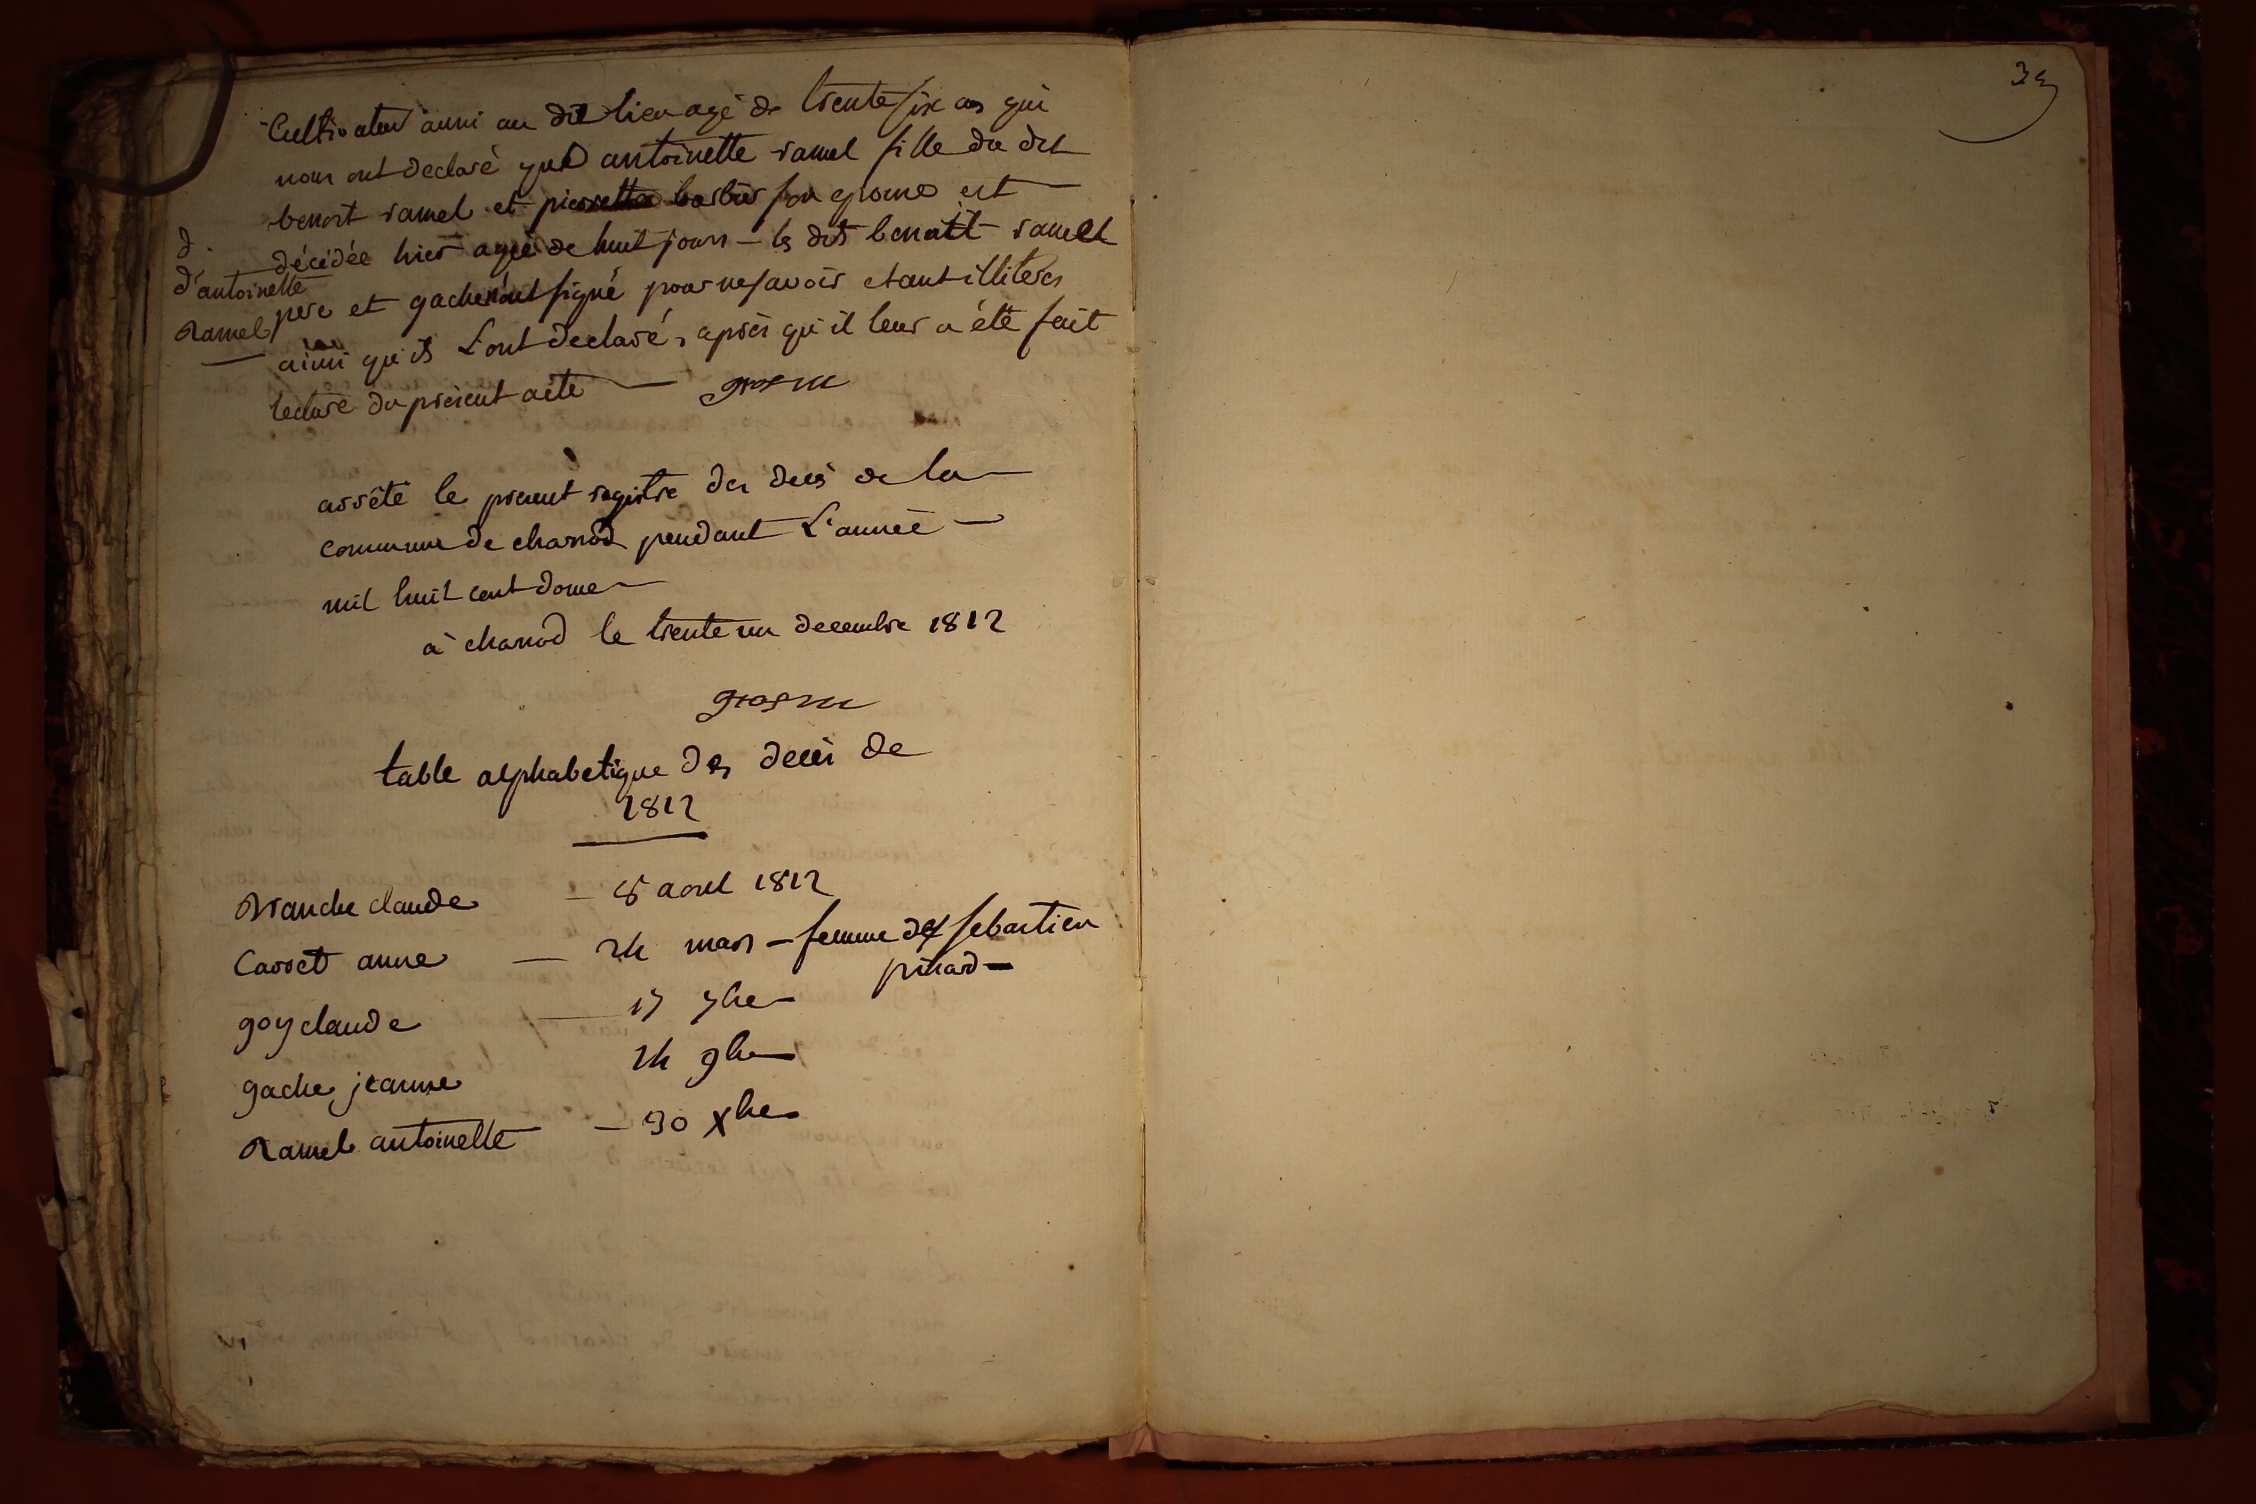 Cultivateur aussi au dit lieu agé de trente six ans qui
nous ont declaré que antoinette ramel fille du dit
benoit ramel et pierrette barbier son epouse est
décédée hier agée de huit jours – les dits benoit ramel
d.
d'antoinette
Ramel
pere et gache n'ont signé pour ne savoir etant illiterés
ainsi qu'ils L'ont declaré, après qu'il leur a été fait
lecture du présent acte — gros m
arrêté le present registre des decès de la
commune de charnod pendant L'année
mil huit cent douze
à charnod le trente un decembre 1812
gros m
table alphabetique des decès de
1812
Branche claude – 15 aout 1812
Carret anne — 24 mars – femme de sebastien
pinard
goy claude — 17 7bre
gache jeanne 24 9bre
Ramel antoinette – 30 Xbre